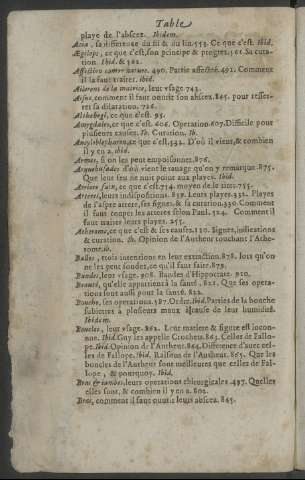 Table
playe de l'abscez. Ibidem.
Acna, sa difference du fil & du lin. 553. Ce que c'est. Ibid.
Ægilops, ce que c'est, son principe & progrez. 361. Sa curation. Ibid. & 362.
Affection contre nature. 490. Partie affectée. 492. Comment
il la faut traiter. ibid.
Ailerons de la matrice, leur vsage. 743.
comment il faut ouurir son abscez. 845. pour resserrer
sa dilatation. 726.
ce que c'est. 95.
Amygdales, ce que c'est. 604. Operation. 607. Difficile pour
plusieurs causes. Ib. Curation. Ib.
ce que c'est. 332. D'où il vient, & combien
il y en a. ibid.
Armes, si on les peut empoisonner. 876.
d'où vient le tauage qu'on y remarque. 875.
Que leur feu ne nuit point aux playes. Ibid.
Arriere-faix, ce que c'est. 754. moyen de le tirer. 755.
Arteres, leurs indispositions. 858. Leurs playes. 332. Playes
de l'aspre artere, ses signes, & sa curation. 330. Comment
il faut couper les arteres selon Paul. 524. Comment il
faut traiter leurs playes. 255.
Atherome, ce que c'est & ses causes. 120. Signes, indications
& curation. Ib. Opinion de l'Autheur touchant l'Atherome.
ib.
Balles, trois intentions en leur extraction. 878. lors qu'on
ne les peut sonder, ce qu'il faut faire. 879.
Bandes, leur vsage. 908. Bandes d'Hippocrate. 910.
Beauté, qu'elle appartient à la santé. 821. Que ses operations
sont aussi pour la santé. 822.
Bouche, ses operations. 587. Ordre. Ibid. Parties de la bouche
subiettes à plusieurs maux à cause de leur humidité.
Ibidem.
Boucles, leur vsage. 862. Leur matiere & figure est inconnue.
Ibid. Guy les appelle Crochets. 863. Celles de Fallope.
Ibid. Opinion de l'Autheur. 864. Difference d'auec celles
de Fallope. Ibid. Raisons de l'Autheur. 865. Que les
boucles de l'Autheur sont meilleures que celles de Fallope,
& pourquoy. Ibid.
Bras & iambes, leurs operations chirurgicales. 497. Quelles
elles sont, & combien il y en a. 802.
Bras, comment il faut ouurir leurs abscez. 845.